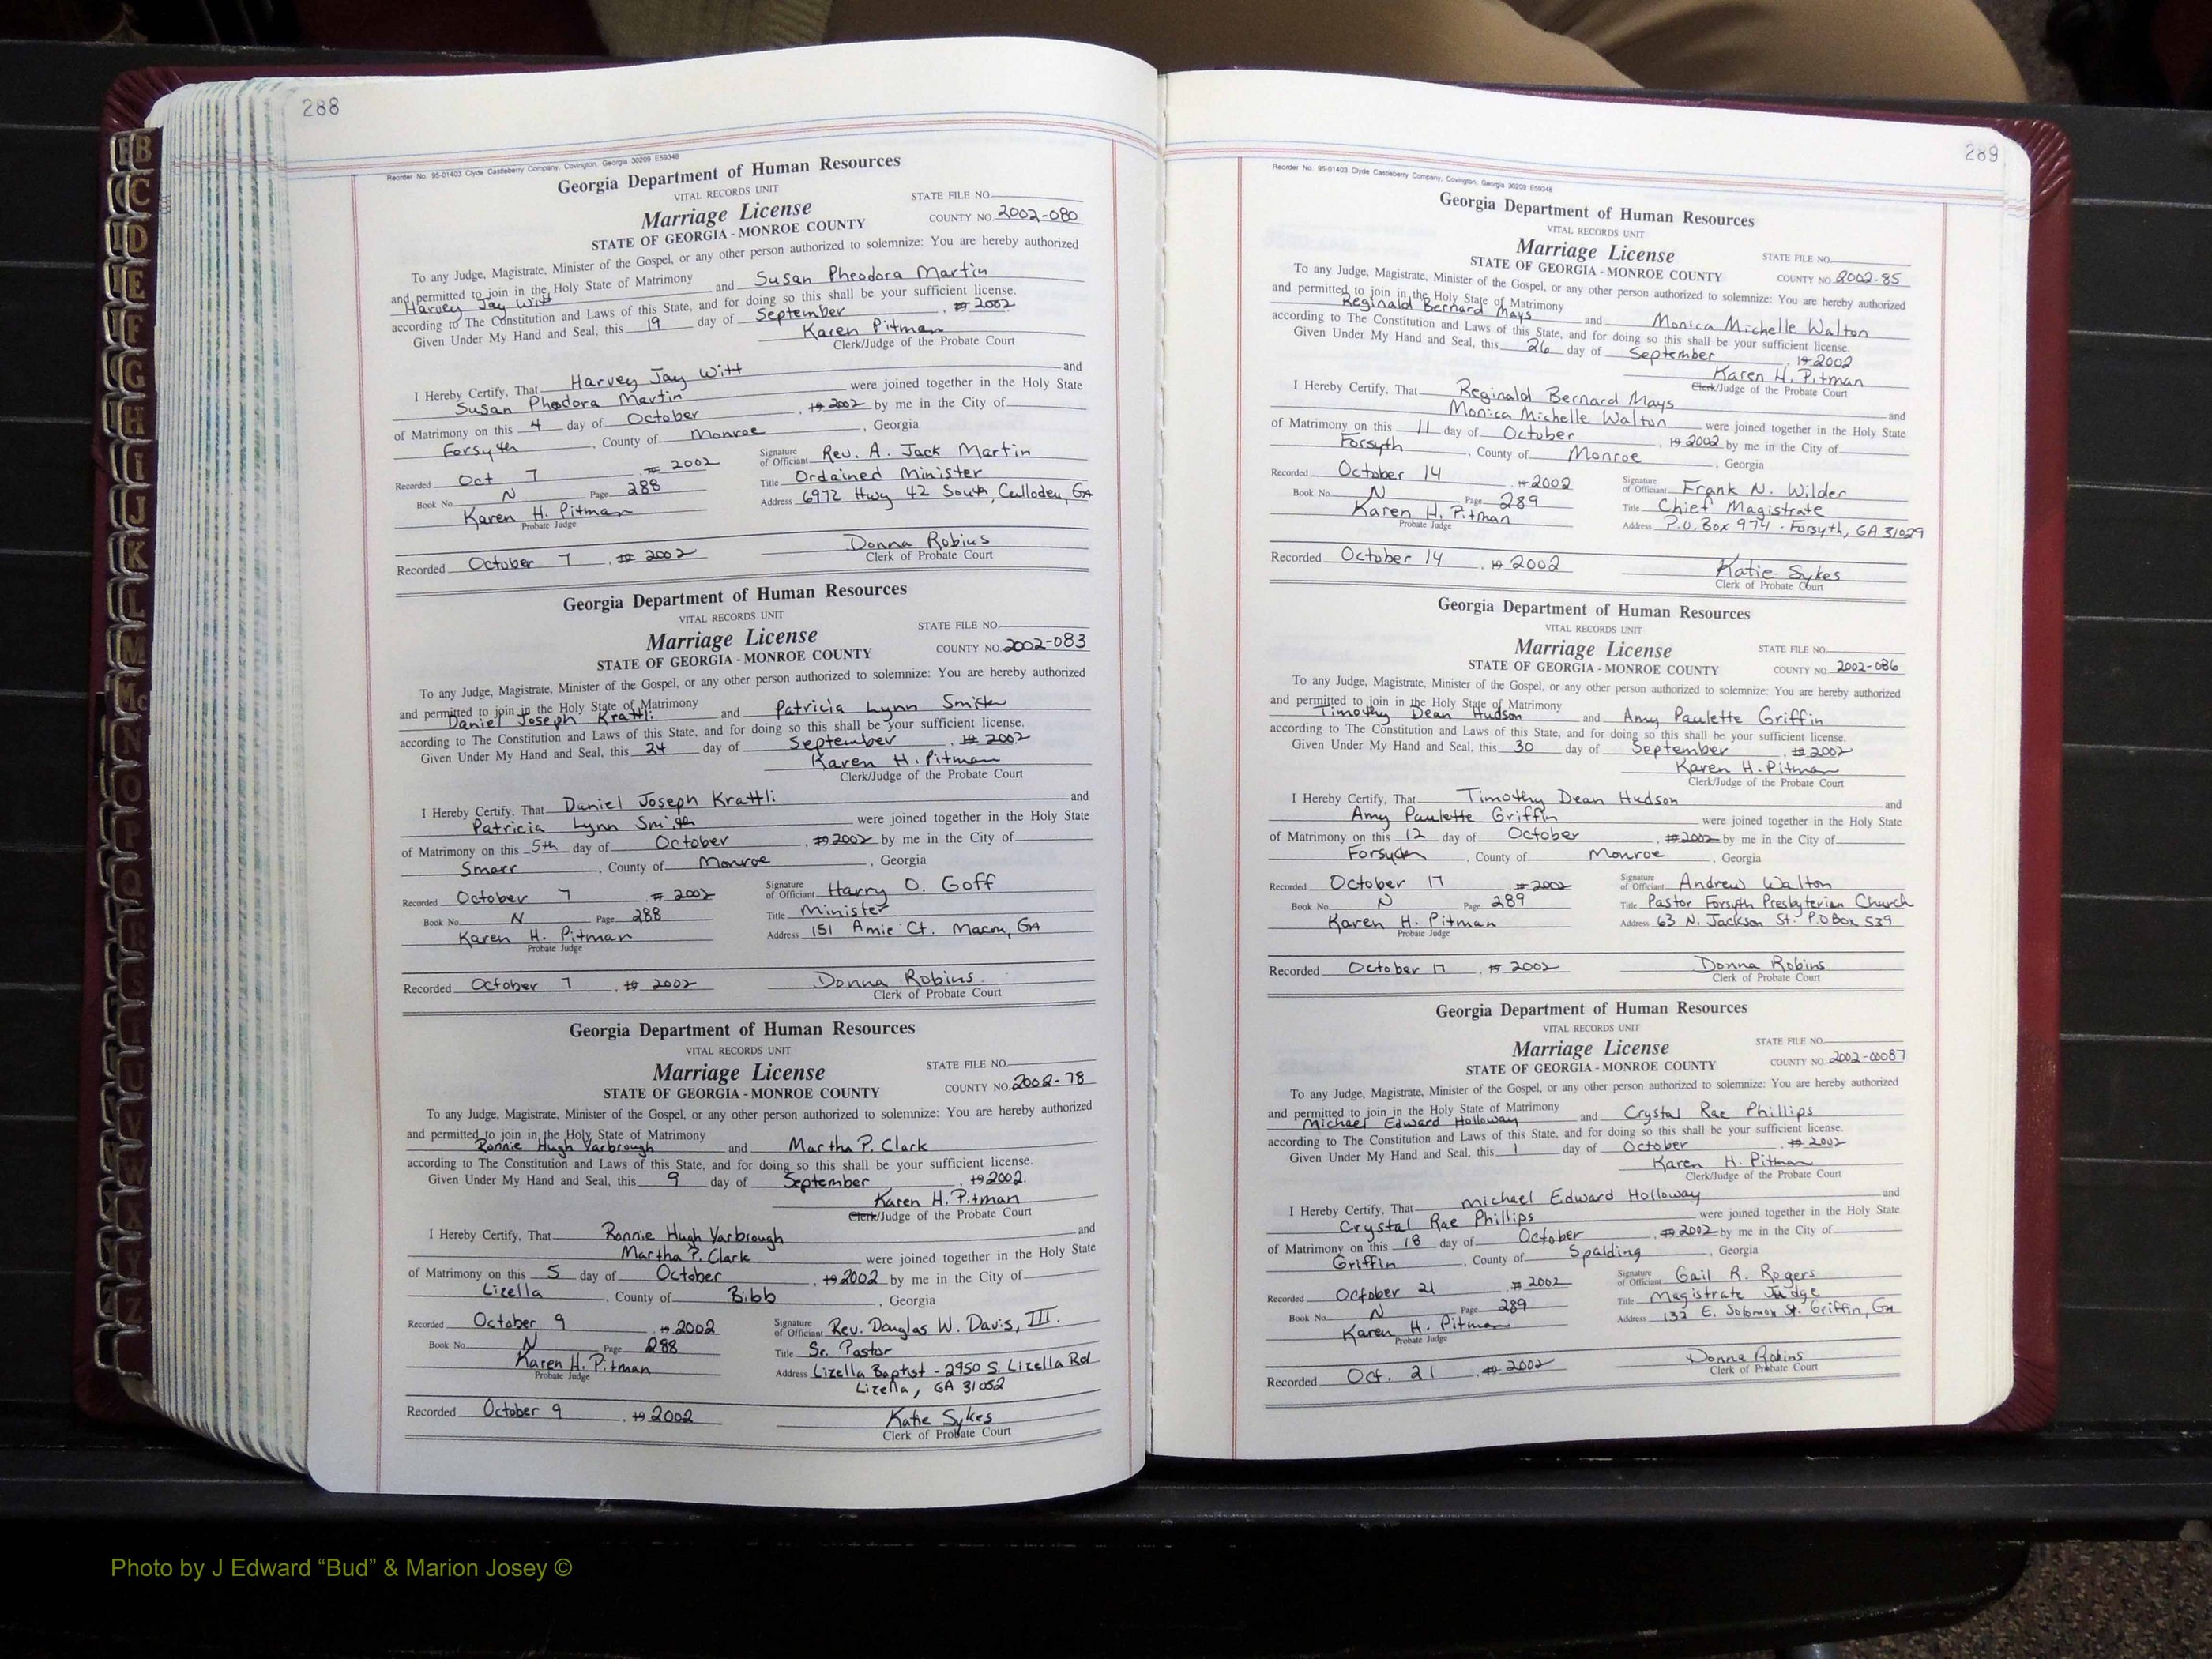 288
Reorder No. 95-01403 Clyde Castleberry Company, Covington, Georgia 30209 E59348
Georgia Department of Human Resources
VITAL RECORDS UNIT
STATE FILE NO.
Marriage License
COUNTY NO. 2002-080
STATE OF GEORGIA - MONROE COUNTY
To any Judge, Magistrate, Minister of the Gospel, or any other person authorized to solemnize: You are hereby authorized
and permitted to join in the Holy State of Matrimony
Harvey Jay Witt and Susan Pheodora Martin
according to The Constitution and Laws of this State, and for doing so this shall be your sufficient license.
Given Under My Hand and Seal, this 19 day of September, 19 2002
Karen Pitman
Clerk/Judge of the Probate Court
I Hereby Certify, That Harvey Jay Witt and
Susan Pheodora Martin were joined together in the Holy State
of Matrimony on this 4 day of October, 19 2002 by me in the City of
Forsyth, County of Monroe, Georgia
Recorded Oct 7 19 2002
Signature of Officiant Rev. A. Jack Martin
Book No. N Page 288
Title Ordained Minister
Karen H. Pitman
Address 6972 Hwy 42 South, Culloden, GA
Probate Judge
Donna Robins
Recorded October 7, 19 2002
Clerk of Probate Court
Georgia Department of Human Resources
VITAL RECORDS UNIT
STATE FILE NO.
Marriage License
COUNTY NO. 2002-083
STATE OF GEORGIA - MONROE COUNTY
To any Judge, Magistrate, Minister of the Gospel, or any other person authorized to solemnize: You are hereby authorized
and permitted to join in the Holy State of Matrimony
Daniel Joseph Krattli and Patricia Lynn Smith
according to The Constitution and Laws of this State, and for doing so this shall be your sufficient license.
Given Under My Hand and Seal, this 24 day of September, 19 2002
Karen H. Pitman
Clerk/Judge of the Probate Court
I Hereby Certify, That Daniel Joseph Krattli and
Patricia Lynn Smith were joined together in the Holy State
of Matrimony on this 5th day of October, 19 2002 by me in the City of
Smarr, County of Monroe, Georgia
Recorded October 7 19 2002
Signature of Officiant Harry O. Goff
Book No. N Page 288
Title Minister
Karen H. Pitman
Address 151 Amie Ct. Macon, GA
Probate Judge
Recorded October 7, 19 2002
Donna Robins
Clerk of Probate Court
Georgia Department of Human Resources
VITAL RECORDS UNIT
STATE FILE NO.
Marriage License
COUNTY NO. 2002-78
STATE OF GEORGIA - MONROE COUNTY
To any Judge, Magistrate, Minister of the Gospel, or any other person authorized to solemnize: You are hereby authorized
and permitted to join in the Holy State of Matrimony
Ronnie Hugh Yarbrough and Martha P. Clark
according to The Constitution and Laws of this State, and for doing so this shall be your sufficient license.
Given Under My Hand and Seal, this 9 day of September, 19 2002.
Karen H. Pitman
Clerk/Judge of the Probate Court
I Hereby Certify, That Ronnie Hugh Yarbrough and
Martha P. Clark were joined together in the Holy State
of Matrimony on this 5 day of October, 19 2002 by me in the City of
Lizella, County of Bibb, Georgia
Recorded October 9, 19 2002
Signature of Officiant Rev. Douglas W. Davis, III.
Book No. N Page 288
Title Sr. Pastor
Karen H. Pitman
Address Lizella Baptist - 2950 S. Lizella Rd
Probate Judge
Lizella, GA 31052
Recorded October 9, 19 2002
Katie Sykes
Clerk of Probate Court
289
Reorder No. 95-01403 Clyde Castleberry Company, Covington, Georgia 30209 E59348
Georgia Department of Human Resources
VITAL RECORDS UNIT
Marriage License
STATE FILE NO.
STATE OF GEORGIA - MONROE COUNTY
COUNTY NO. 2002-85
To any Judge, Magistrate, Minister of the Gospel, or any other person authorized to solemnize: You are hereby authorized
and permitted to join in the Holy State of Matrimony
Reginald Bernard Mays and Monica Michelle Walton
according to The Constitution and Laws of this State, and for doing so this shall be your sufficient license.
Given Under My Hand and Seal, this 26 day of September, 19 2002
Karen H. Pitman
Clerk/Judge of the Probate Court
I Hereby Certify, That Reginald Bernard Mays and
Monica Michelle Walton were joined together in the Holy State
of Matrimony on this 11 day of October, 19 2002 by me in the City of
Forsyth, County of Monroe, Georgia
Recorded October 14, 19 2002
Signature of Officiant Frank N. Wilder
Book No. N Page 289
Title Chief Magistrate
Karen H. Pitman
Address P.O. Box 974 - Forsyth, GA 31029
Probate Judge
Recorded October 14, 19 2002
Katie Sykes
Clerk of Probate Court
Georgia Department of Human Resources
VITAL RECORDS UNIT
Marriage License
STATE FILE NO.
STATE OF GEORGIA - MONROE COUNTY
COUNTY NO. 2002-086
To any Judge, Magistrate, Minister of the Gospel, or any other person authorized to solemnize: You are hereby authorized
and permitted to join in the Holy State of Matrimony
Timothy Dean Hudson and Amy Paulette Griffin
according to The Constitution and Laws of this State, and for doing so this shall be your sufficient license.
Given Under My Hand and Seal, this 30 day of September, 19 2002
Karen H. Pitman
Clerk/Judge of the Probate Court
I Hereby Certify, That Timothy Dean Hudson and
Amy Paulette Griffin were joined together in the Holy State
of Matrimony on this 12 day of October, 19 2002 by me in the City of
Forsyth, County of Monroe, Georgia
Recorded October 17, 19 2002
Signature of Officiant Andrew Walton
Book No. N Page 289
Title Pastor Forsyth Presbyterian Church
Karen H. Pitman
Address 63 N. Jackson St. P.O Box 539
Probate Judge
Recorded October 17, 19 2002
Donna Robins
Clerk of Probate Court
Georgia Department of Human Resources
VITAL RECORDS UNIT
Marriage License
STATE FILE NO.
STATE OF GEORGIA - MONROE COUNTY
COUNTY NO. 2002-00087
To any Judge, Magistrate, Minister of the Gospel, or any other person authorized to solemnize: You are hereby authorized
and permitted to join in the Holy State of Matrimony
Michael Edward Holloway and Crystal Rae Phillips
according to The Constitution and Laws of this State, and for doing so this shall be your sufficient license.
Given Under My Hand and Seal, this 1 day of October, 19 2002
Karen H. Pitman
Clerk/Judge of the Probate Court
I Hereby Certify, That Michael Edward Holloway and
Crystal Rae Phillips were joined together in the Holy State
of Matrimony on this 18 day of October, 19 2002 by me in the City of
Griffin, County of Spalding, Georgia
Recorded October 21 19 2002
Signature of Officiant Gail R. Rogers
Book No. N Page 289
Title Magistrate Judge
Karen H. Pitman
Address 132 E. Solomon St. Griffin, GA
Probate Judge
Recorded Oct. 21, 19 2002
Donna Robins
Clerk of Probate Court
B
C
D
E
F
G
H
I
J
K
L
M
Mc
N
O
P
Q
R
S
T
U
V
W
X
Y
Z
Photo by J Edward “Bud” & Marion Josey ©